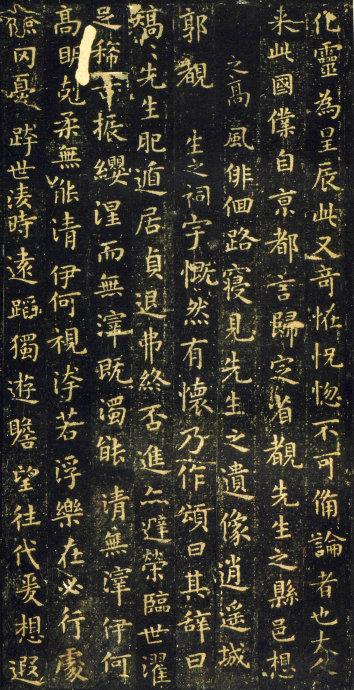 化靈為星辰此又奇怪怳惚不可備論者也大人
来此國僕自京都言歸定省覩先生之縣邑想
之高風俳佪路寢見先生之遺像逍遥城
郭觀生之祠宇慨然有懷乃作頌曰其辭曰
矯〻先生肥遁居貞退弗終否進亦避榮臨世濯
足稀振纓涅而無滓既濁能清無滓伊何
高明克柔無能清伊何視洿若浮樂在必行處
險罔憂跨世凌時遠蹈獨遊瞻望往代爰想遐